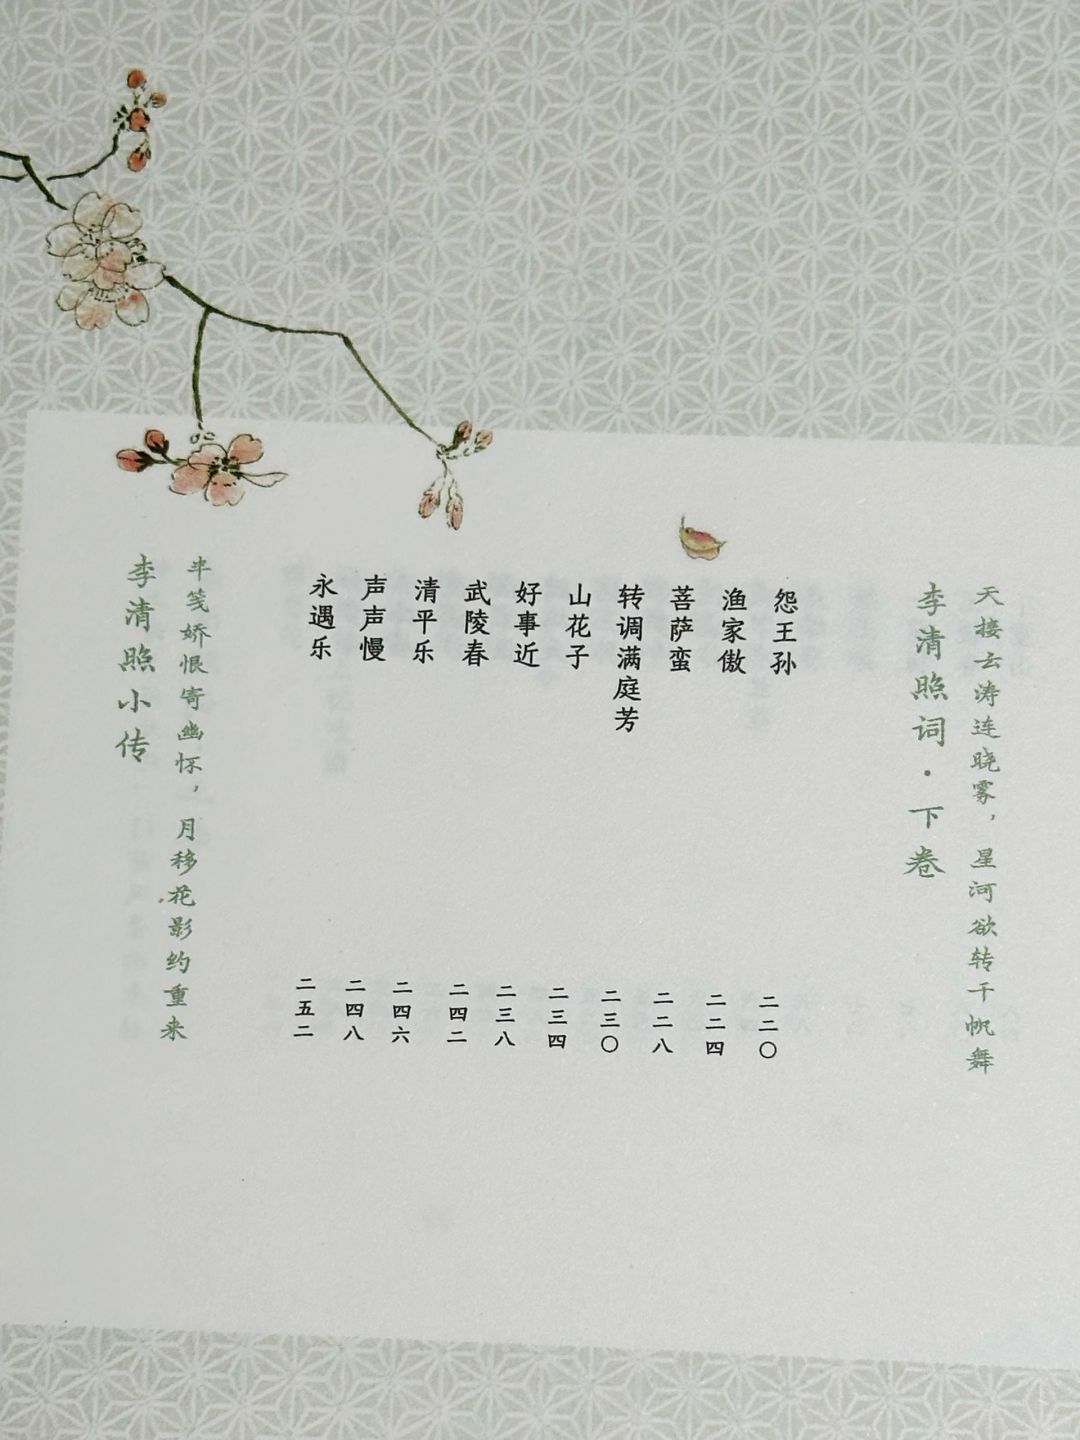 天接云涛连晓雾，星河欲转千帆舞
李清照词·下卷
怨王孙 二二〇
渔家傲 二二四
菩萨蛮 二二八
转调满庭芳 二三〇
山花子 二三四
好事近 二三八
武陵春 二四二
清平乐 二四六
声声慢 二四八
永遇乐 二五二
半笺娇恨寄幽怀，月移花影约重来
李清照小传